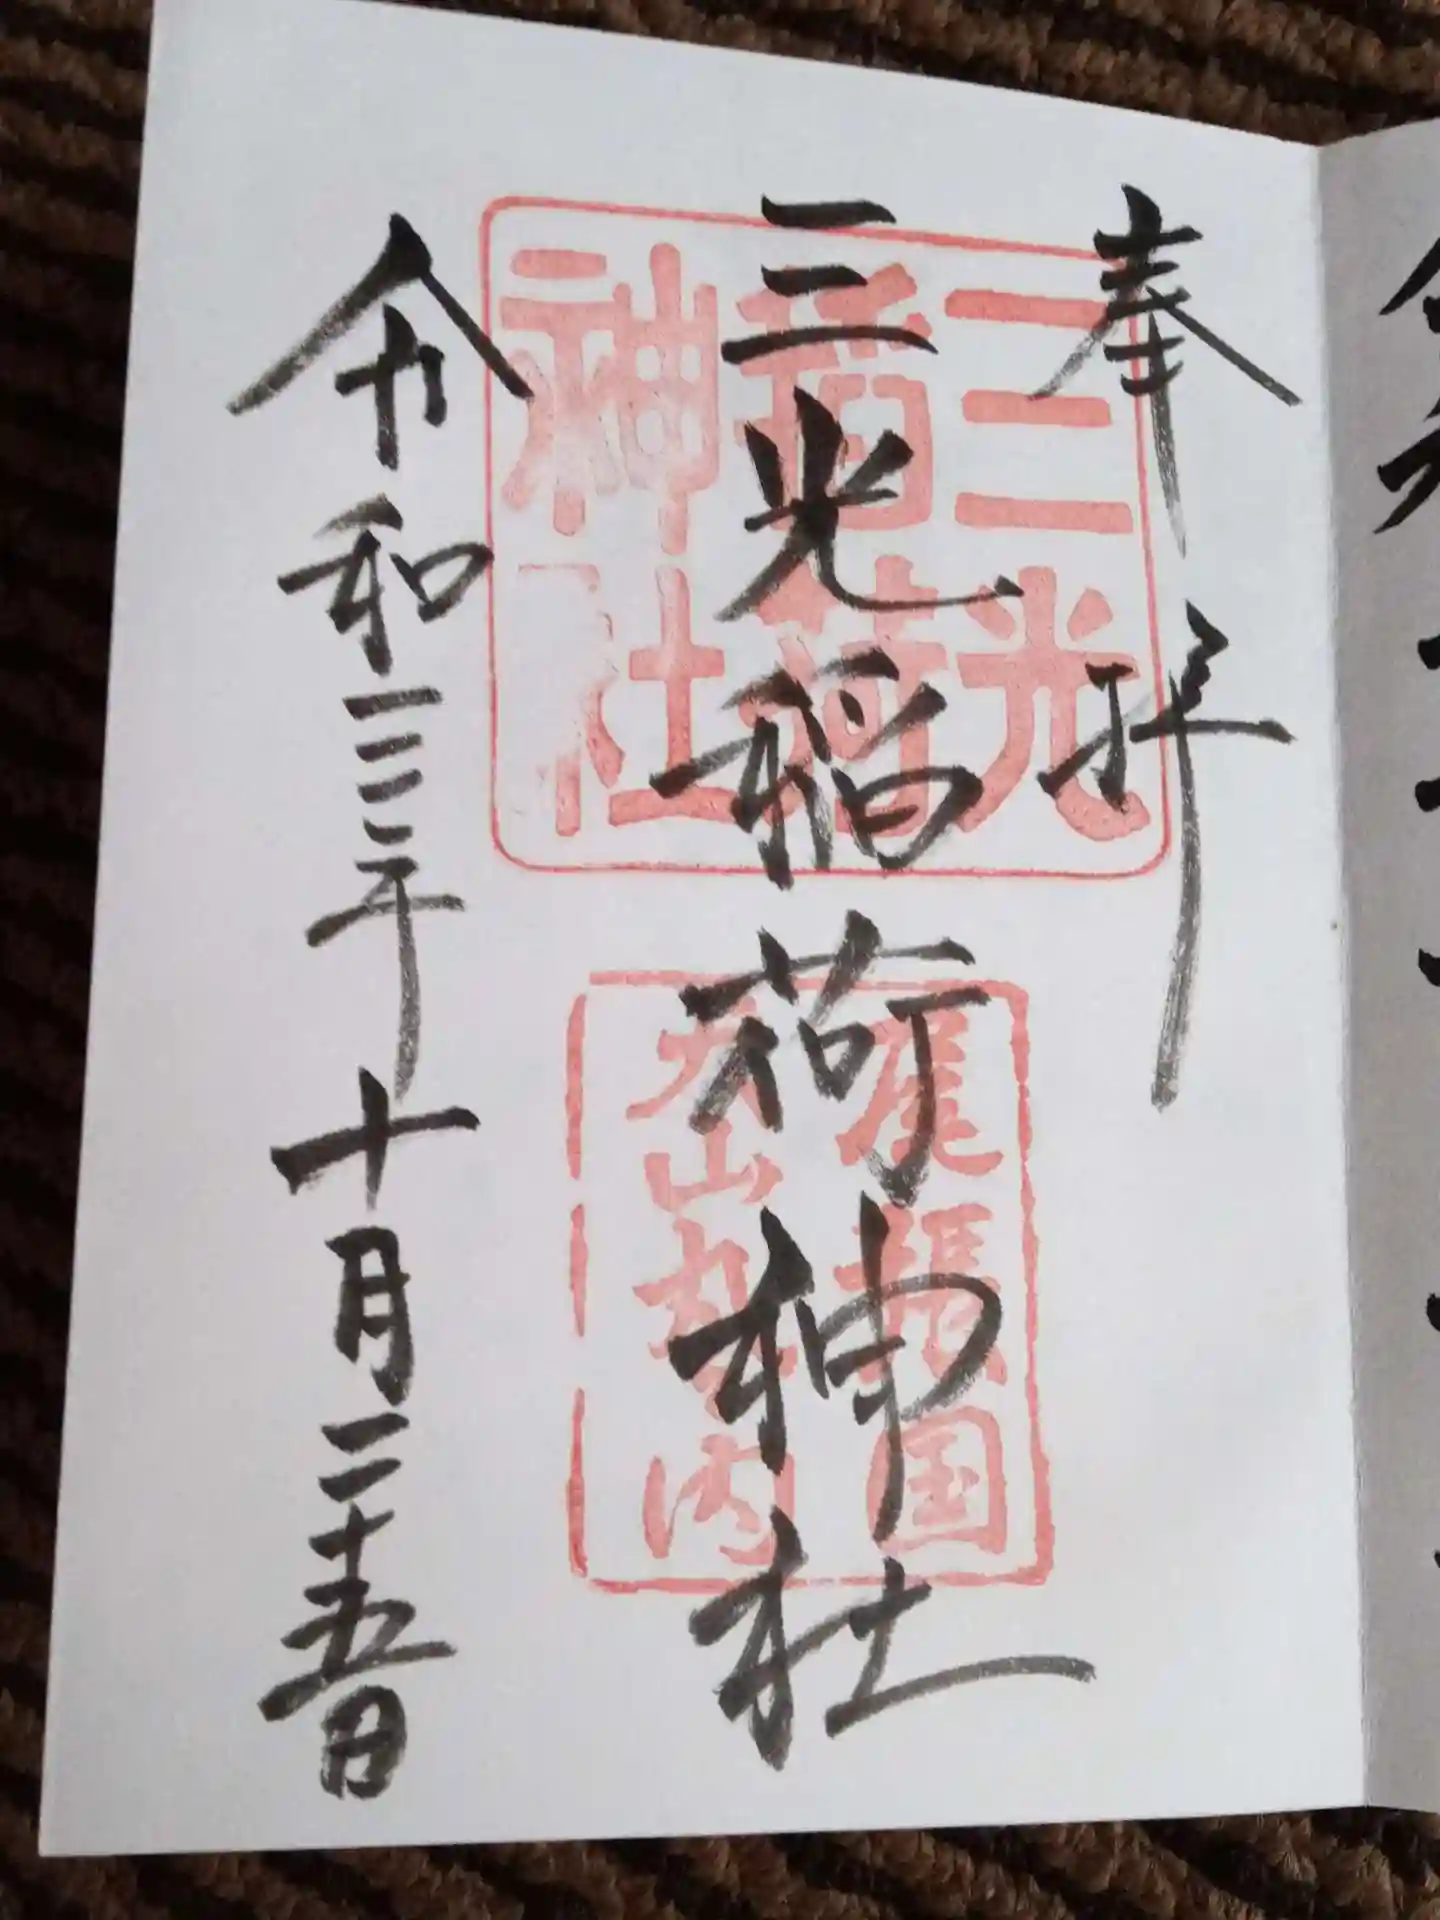 奉拝
三光稲荷神社
令和三年十月二十五日
三光
稲荷
神社
尾張国
犬山丸之内